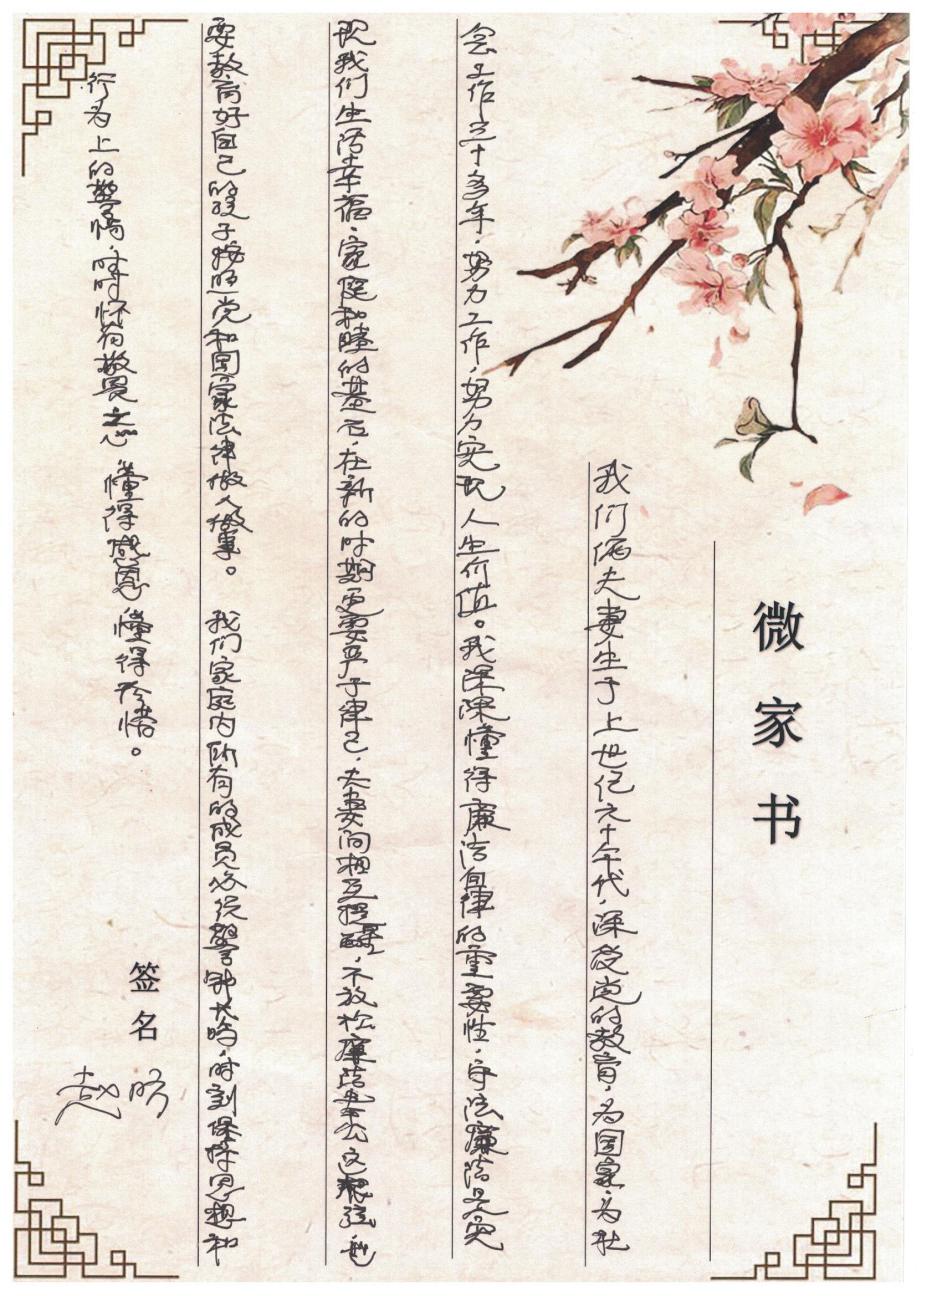 微家书
我们俩夫妻生于上世纪六十年代，深受党的教育，为国家、为社
会工作三十多年，努力工作，努力实现人生价值。我深深懂得廉洁自律的重要性，守法廉洁是实
现我们生活幸福、家庭和睦的基石，在新的时期更要严于律己，夫妻间相互提醒，不放松廉洁奉公这根弦，也
要教育好自己的孩子按照党和国家法律做人做事。我们家庭内所有的成员必须警钟长鸣，时刻保持思想和
行为上的警惕，时时怀有敬畏之心，懂得感恩，懂得珍惜。
签名
赵